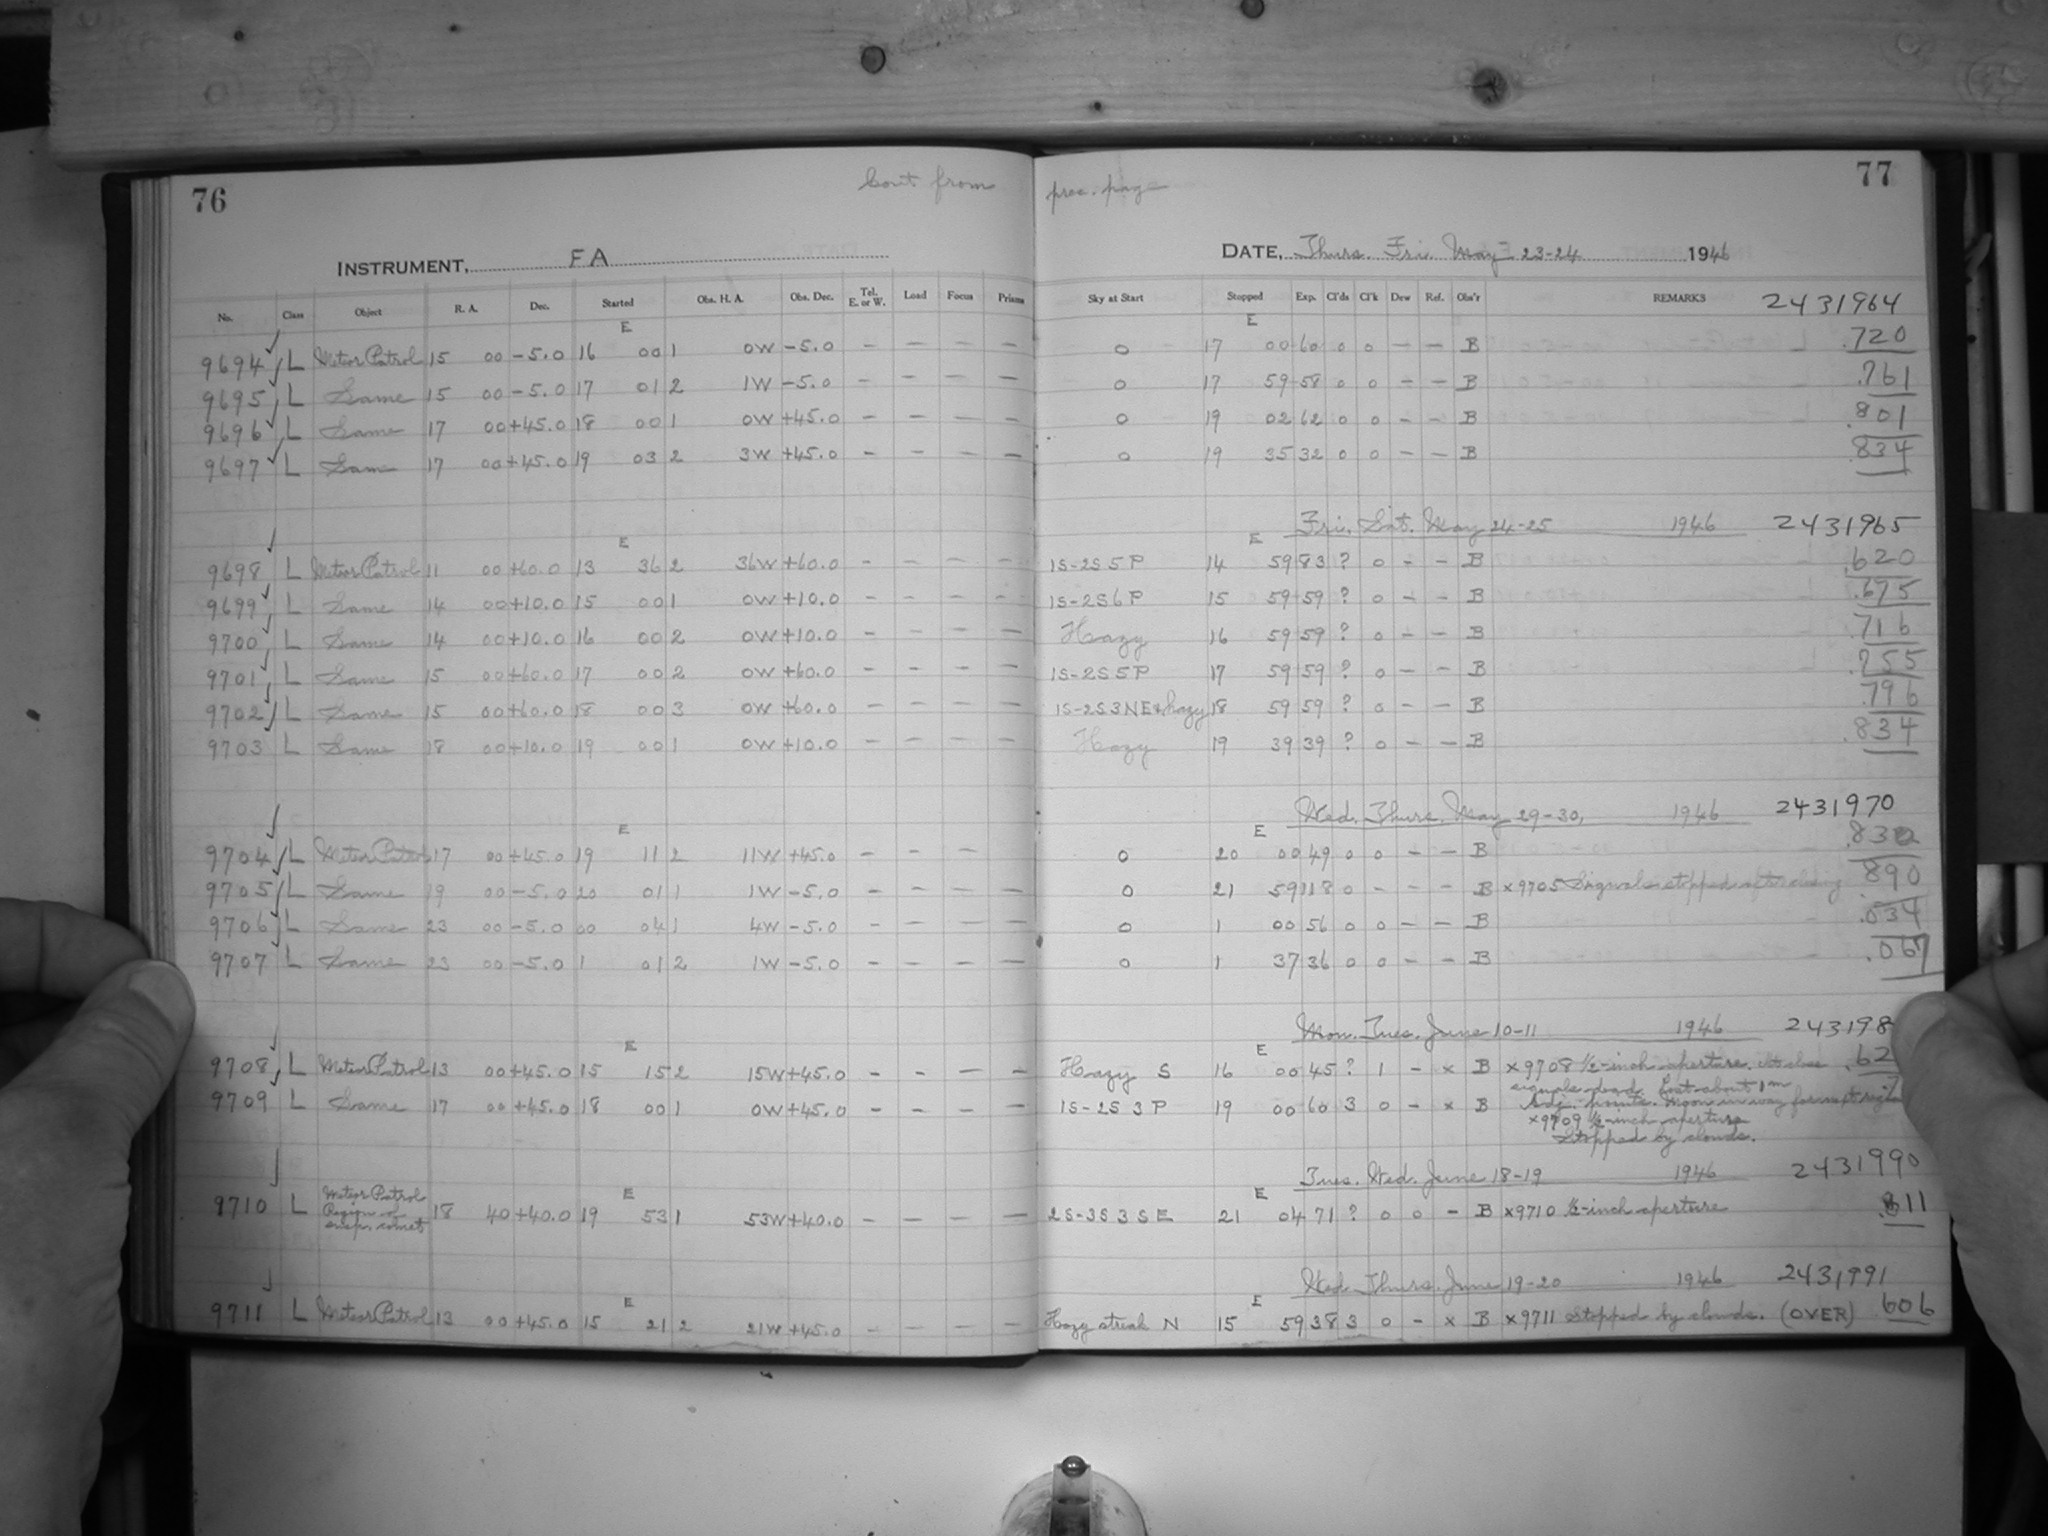 76
Cont from
prec. page
77
INSTRUMENT, FA
DATE, Thurs. Fri. May 23-24 1946
No. Class Object R. A. Dec. Started Obs. H. A. Obs. Dec. Tel. E. or W. Load Focus Prisms Sky at Start Stopped Exp. Cl'ds Cl'k Dew Ref. Obs'r REMARKS 2431964
E E
9694 L Meteor Patrol 15 00 -5.0 16 00 1 0W -5.0 - - - - 0 17 00 60 0 0 - - B .720
9695 L Same 15 00 -5.0 17 01 2 1W -5.0 - - - - 0 17 59 58 0 0 - - B .761
9696 L Same 17 00 +45.0 18 00 1 0W +45.0 - - - - 0 19 02 62 0 0 - - B .801
9697 L Same 17 00 +45.0 19 03 2 3W +45.0 - - - - 0 19 35 32 0 0 - - B .834
Fri. Sat. May 24-25 1946 2431965
E E
9698 L Meteor Patrol 11 00 +60.0 13 36 2 36W +60.0 - - - - 1S-2S 5 P 14 59 83 ? 0 - - B .620
9699 L Same 14 00 +10.0 15 00 1 0W +10.0 - - - - 1S-2S 6 P 15 59 59 ? 0 - - B .675
9700 L Same 14 00 +10.0 16 00 2 0W +10.0 - - - - Hazy 16 59 59 ? 0 - - B .716
9701 L Same 15 00 +60.0 17 00 2 0W +60.0 - - - - 1S-2S 5 P 17 59 59 ? 0 - - B .755
9702 L Same 15 00 +60.0 18 00 3 0W +60.0 - - - - 1S-2S 3 NE + hazy 18 59 59 ? 0 - - B .796
9703 L Same 18 00 +10.0 19 00 1 0W +10.0 - - - - Hazy 19 39 39 ? 0 - - B .834
Wed. Thurs. May 29-30, 1946 2431970
E E
9704 L Meteor Patrol 17 00 +45.0 19 11 2 11W +45.0 - - - 0 20 00 49 0 0 - - B .832
9705 L Same 19 00 -5.0 20 01 1 1W -5.0 - - - - 0 21 59 118 0 - - - B x9705 Signals stopped after 890
9706 L Same 23 00 -5.0 00 04 1 4W -5.0 - - - - 0 1 00 56 0 0 - - B .034
9707 L Same 23 00 -5.0 1 01 2 1W -5.0 - - - - 0 1 37 36 0 0 - - B .067
Mon. Tues. June 10-11 1946 243198
E E
9708 L Meteor Patrol 13 00 +45.0 15 15 2 15W +45.0 - - - - Hazy S 16 00 45 ? 1 - x B x9708 ½-inch aperture. .62
signals dead. Lost about 1m
9709 L Same 17 00 +45.0 18 00 1 0W +45.0 - - - - 1S-2S 3 P 19 00 60 3 0 - x B Adj. points. Moon in way for
x9709 ½-inch aperture
Stopped by clouds.
Tues. Wed. June 18-19 1946 2431990
E E
9710 L Meteor Patrol Region of susp. comet 18 40 +40.0 19 53 1 53W +40.0 - - - - 2S-3S 3 SE 21 04 71 ? 0 0 - B x9710 ½-inch aperture .811
Wed. Thurs. June 19-20 1946 2431991
E E
9711 L Meteor Patrol 13 00 +45.0 15 21 2 21W +45.0 - - - - Hazy streak N 15 59 38 3 0 - x B x9711 Stopped by clouds. (OVER) 606